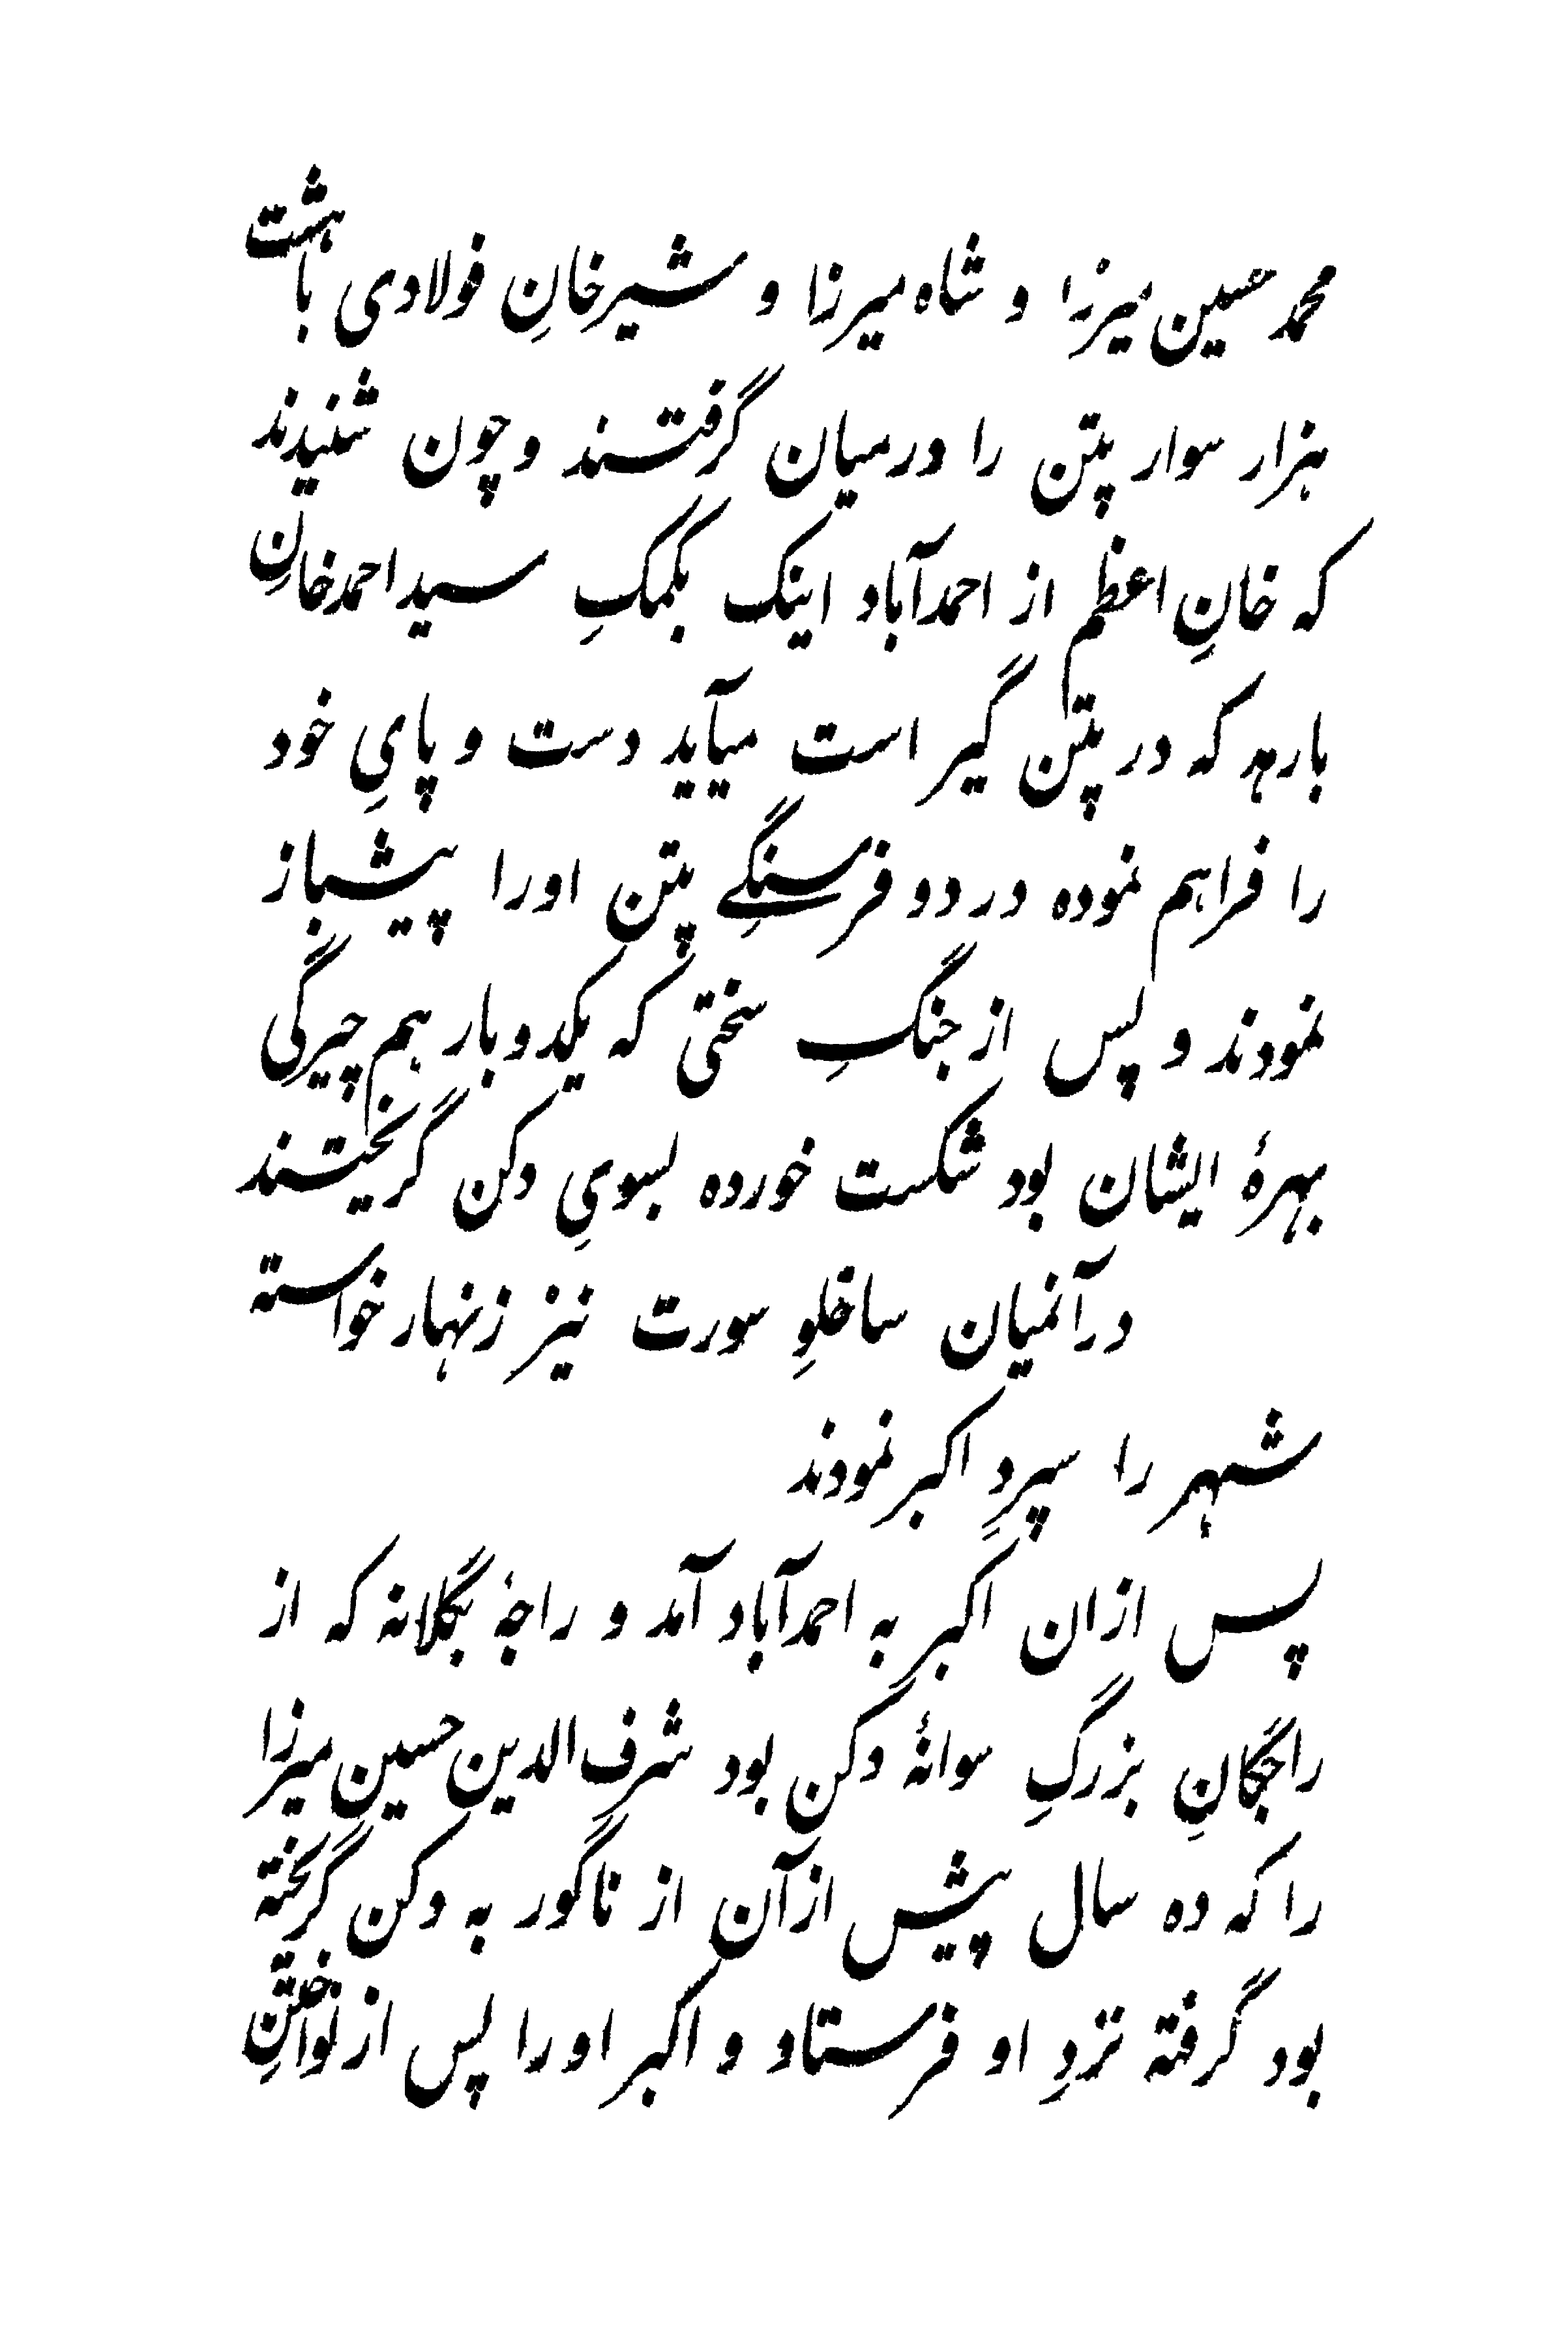 محمد حسین میرزا و شاه میرزا و شیرخانِ فولادی با هشت
هزار سوار پتن را درمیان گرفتند و چون شنیدند
که خانِ اعظم از احمدآباد اینک بکمکِ سید احمدخانِ
بارهه که در پتن گیر است میآید دست و پایِ خود
را فراهم نموده در دو فرسنگیِ پتن اورا پیشباز
نمودند و پس از جنگِ سختی که یکدوبار هم چیرگی
بهرهٔ ایشان بود شکست خورده بسویِ دکن گریختند
درآنمیان ساخلوِ سورت نیز زنهار خواسته
شهر را سپردِ اکبر نمودند
پس ازان اکبر به احمدآباد آمد و راجهٔ بگلانه که از
راجگانِ بزرگِ سوانهٔ دکن بود شرف‌الدین حسین میرزا
را که ده سال پیش ازآن از ناگور به دکن گریخته
بود گرفته نزدِ او فرستاد و اکبر اورا پس از نواختنِ